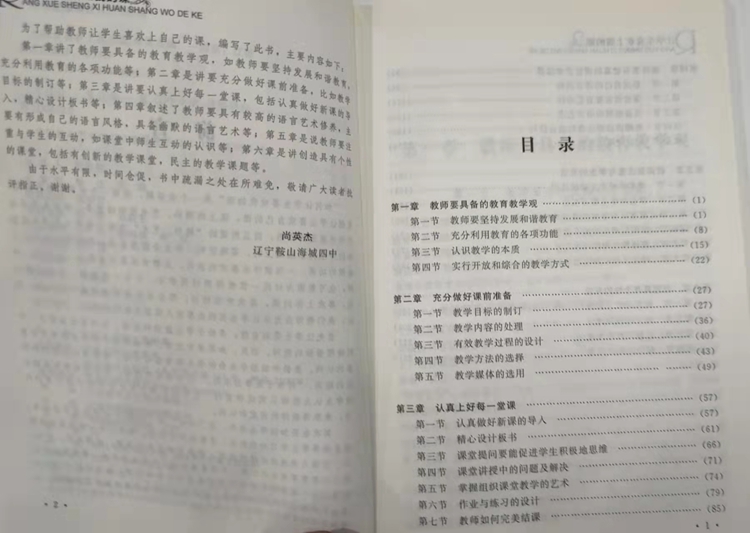 ANG XUE SHENG XI HUAN SHANG WO DE KE
为了帮助教师让学生喜欢上自己的课，编写了此书，主要内容如下：
第一章讲了教师要具备的教育教学观，如教师要坚持发展和谐教育，
充分利用教育的各项功能等；第二章是讲要充分做好课前准备，比如教学
目标的制订等；第三章是讲要认真上好每一堂课，包括认真做好新课的导
入，精心设计板书等；第四章叙述了教师要具有较高的语言艺术修养，主
要有形成自己的语言风格，具备幽默的语言艺术等；第五章是说教师要注
重与学生的互动，如课堂中师生互动的认识等；第六章是讲创造具有个性
的课堂，包括有创新的教学课堂，民主的教学课题等。
由于水平有限，时间仓促，书中疏漏之处在所难免，敬请广大读者批
评指正，谢谢。
尚英杰
辽宁鞍山海城四中
·2·
目 录
第一章 教师要具备的教育教学观 ………… (1)
第一节 教师要坚持发展和谐教育 ………… (1)
第二节 充分利用教育的各项功能 ………… (8)
第三节 认识教学的本质 ………… (15)
第四节 实行开放和综合的教学方式 ………… (22)
第二章 充分做好课前准备 ………… (27)
第一节 教学目标的制订 ………… (27)
第二节 教学内容的处理 ………… (36)
第三节 有效教学过程的设计 ………… (40)
第四节 教学方法的选择 ………… (43)
第五节 教学媒体的选用 ………… (49)
第三章 认真上好每一堂课 ………… (57)
第一节 认真做好新课的导入 ………… (57)
第二节 精心设计板书 ………… (61)
第三节 课堂提问要能促进学生积极地思维 ………… (66)
第四节 课堂讲授中的问题及解决 ………… (71)
第五节 掌握组织课堂教学的艺术 ………… (74)
第六节 作业与练习的设计 ………… (79)
第七节 教师如何完美结课 ………… (85)
·1·